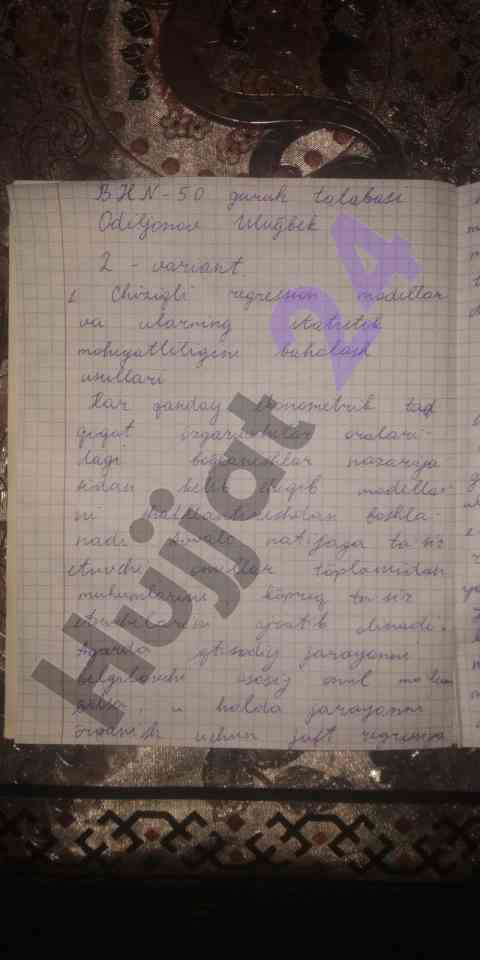 BHN-50 guruh talabasi
Odiljonov Ulug'bek
2 - variant.
1. Chiziqli regression modellar
va ularning statistik
mohiyatliligini baholash
usullari
Har qanday ekonometrik tad
qiqot o'zgaruvchilar oralari-
dagi bog'lanishlar nazariya
sidan kelib chiqib modellar
ni shakllantirishdan boshla-
nadi. Avvalo natijaga ta'sir
etuvchi omillar to'plamidan
muhumlarini ko'proq ta'sir
etuvchilarini ajratib olinadi.
Agarda iqtisodiy jarayonni
belgilovchi asosiy omil ma'lum
bo'lsa, u holda jarayonni
o'rganish uchun juft regression
Hujjat
24